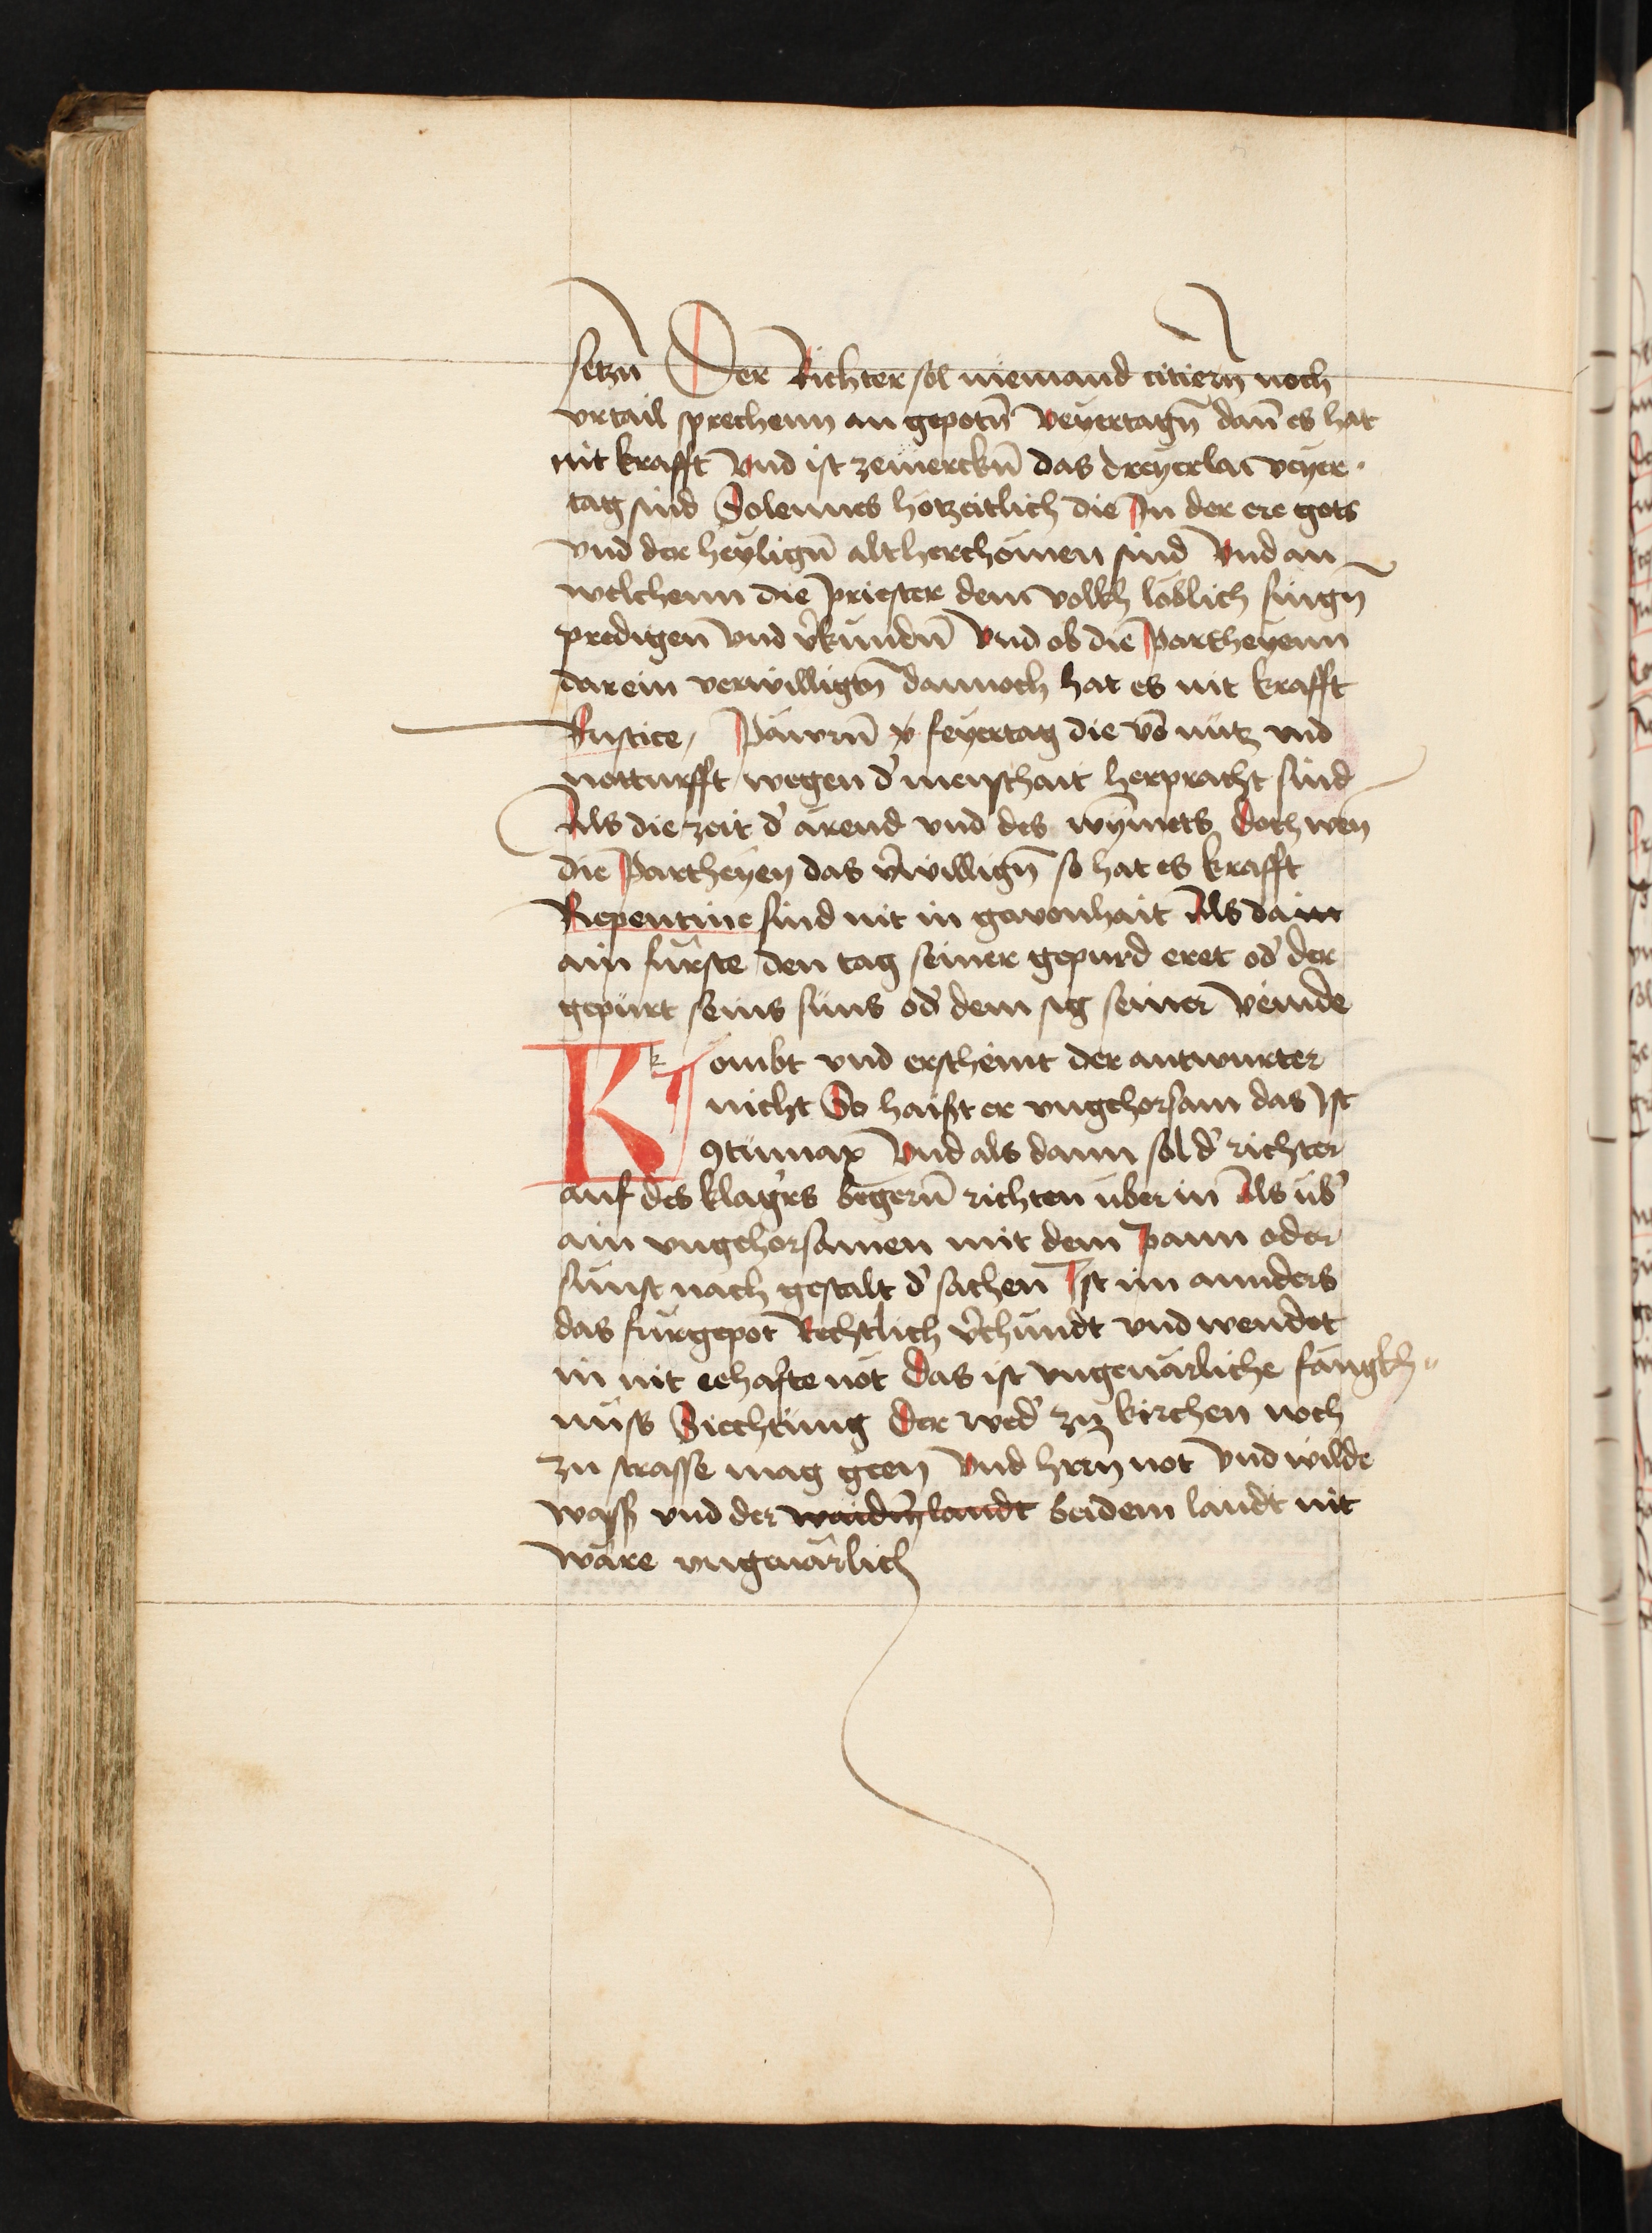 setzn̄ Der Richter sol niemand citiern̄ noch
vrtail sprechenn an gepotn̄ veyertagn̄ dan̄ es hat
nit krafft vnd ist zemerckn̄ das dreyerlai veyer-
tag sind Solennes hotzeitlich die In der ere gots
vnd der heylign̄ altherchömen sind Vnd an
welchenn die priester dem volkh loblich singn̄
predigen̄ vnd v̓kundn̄ Vnd ob die partheyenn
darein verwilligtn̄ dannoch hat es nit krafft
Rustice, Pawrn̄ feyertag die vō nutz vnd
notturfft wegen d̓ menschait herpracht sind
Als die zeit d̓ ärend vnd des wÿmets Doch wen̄
die Partheyen das v̓willign̄ so hat es krafft
Repentine sind nit in gewonhait Als da
ain fürste den tag seiner gepurd eret od̓ der
gepürt seins süns od̓ dem sig seiner veinde
Kombt vnd erscheint der antwurter
nicht So haißt er vngehorsam das Ist
ꝯtumax Vnd als dann sol d̓ richter
auf des klag̓rs begern̄ richten über in Als üb̓
ain vngehorsamen mit dem pann oder
sünst nach gestalt d̓ sachen Ist im annders
das fürgepot Rechtlich v̓chündt vnd wendet
in nit eehafte nöt Das ist vngeuärliche fangkh-
nüss Siechtung Der wed̓ zu kirchen noch
zu strasse mag geen Vnd hrrn̄ not Vnd wilde
wass̓ vnd der waidn̄ landt bei dem landt nit
wäre vngeuärlich